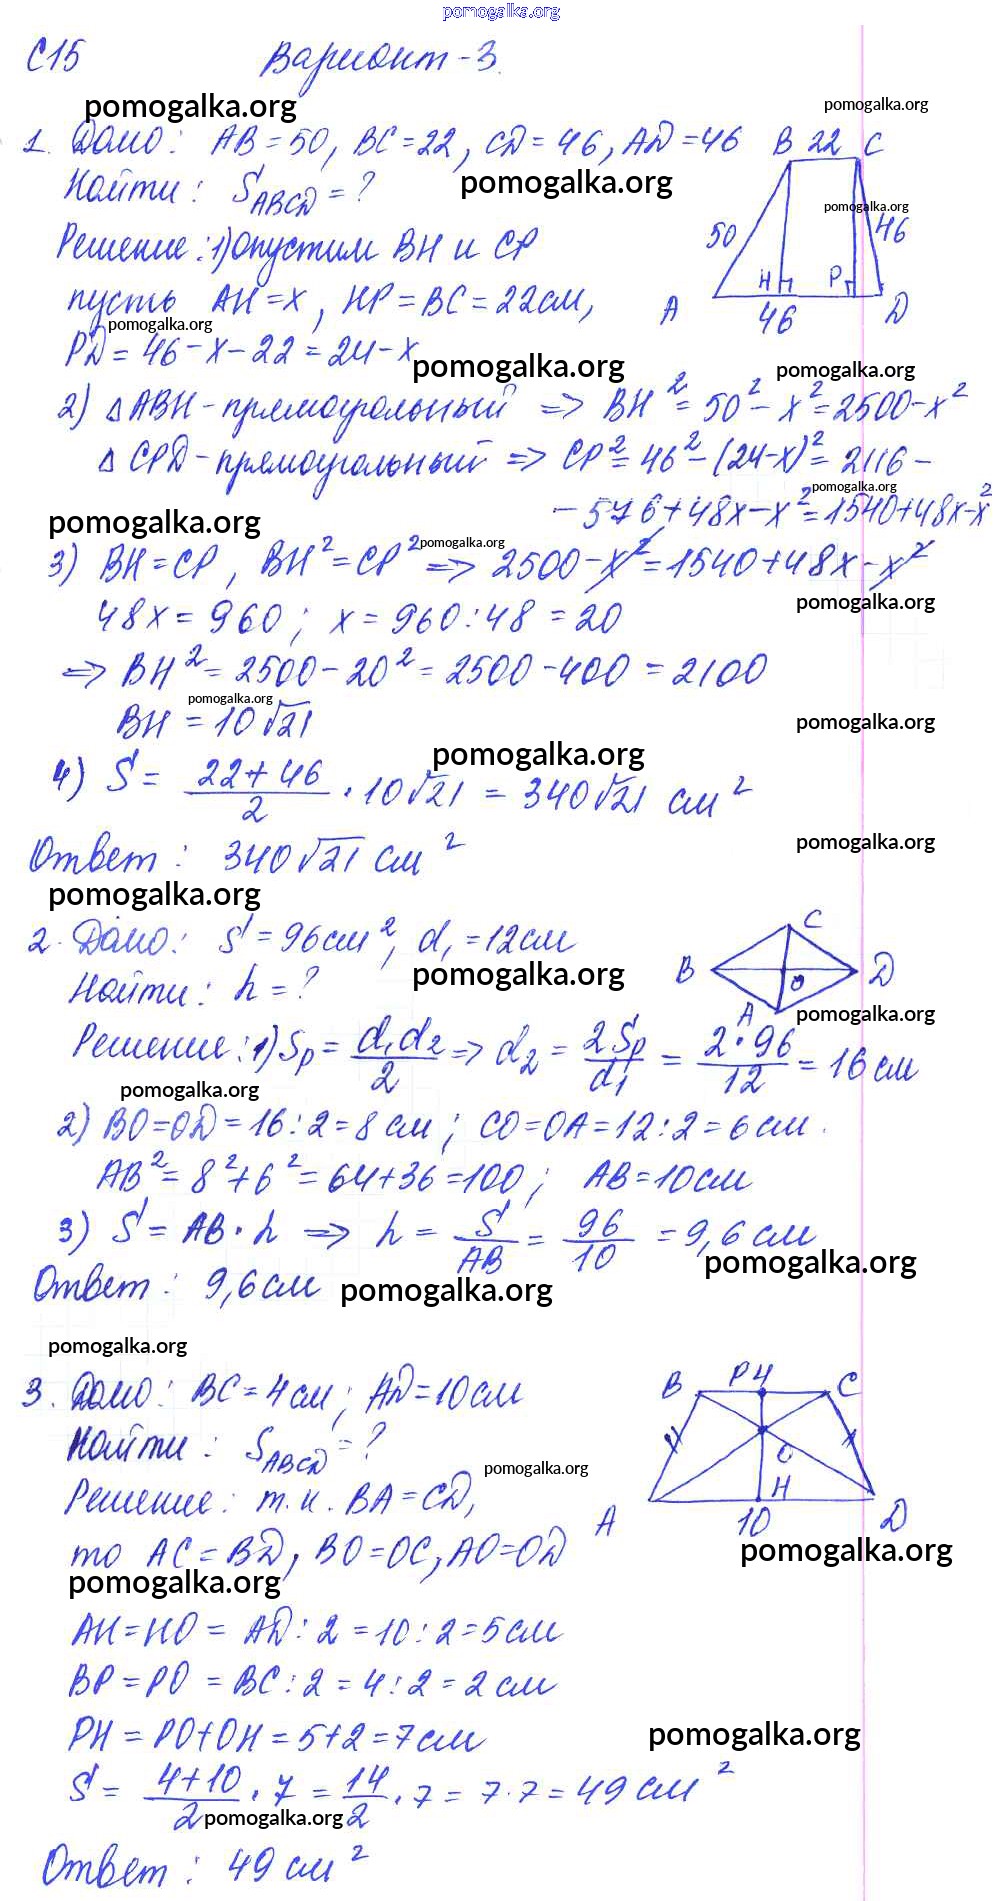 pomogalka.org
С15 Вариант-3.
pomogalka.org pomogalka.org
1. Дано: AB=50, BC=22, CD=46, AD=46 B 22 C
Найти: S_ABCD=? pomogalka.org
pomogalka.org
50 46
Решение: 1) Опустим BH и CP
H P
пусть AH=x, HP=BC=22см, A 46 D
pomogalka.org
PD=46-x-22=24-x
pomogalka.org pomogalka.org
2) △ABH-прямоугольный => BH²=50²-x²=2500-x²
△CPD-прямоугольный => CP²=46²-(24-x)²=2116-
pomogalka.org
-576+48x-x²=1540+48x-x²
pomogalka.org pomogalka.org
3) BH=CP, BH²=CP² => 2500-x²=1540+48x-x²
pomogalka.org
48x=960; x=960:48=20
=> BH²=2500-20²=2500-400=2100
pomogalka.org
BH=10√21 pomogalka.org
pomogalka.org
4) S=(22+46)/2·10√21=340√21 см²
pomogalka.org
Ответ: 340√21 см²
pomogalka.org
2. Дано: S=96см², d₁=12см
C
B O D
A
pomogalka.org
Найти: h=?
pomogalka.org
Решение: 1) Sр=d₁d₂/2 => d₂=2Sр/d₁=2·96/12=16см
pomogalka.org
2) BO=OD=16:2=8см; CO=OA=12:2=6см.
AB²=8²+6²=64+36=100; AB=10см
3) S=AB·h => h=S/AB=96/10=9,6см
pomogalka.org
Ответ: 9,6см pomogalka.org
pomogalka.org
3. Дано: BC=4см; AD=10см
B P 4 C
O
H
A 10 D
Найти: S_ABCD=?
pomogalka.org
Решение: т.к. BA=CD,
то AC=BD, BO=OC, AO=OD
pomogalka.org pomogalka.org
AH=HO=AD:2=10:2=5см
BP=PO=BC:2=4:2=2см
PH=PO+OH=5+2=7см pomogalka.org
S=(4+10)/2·7=14/2·7=7·7=49см²
pomogalka.org
Ответ: 49см²